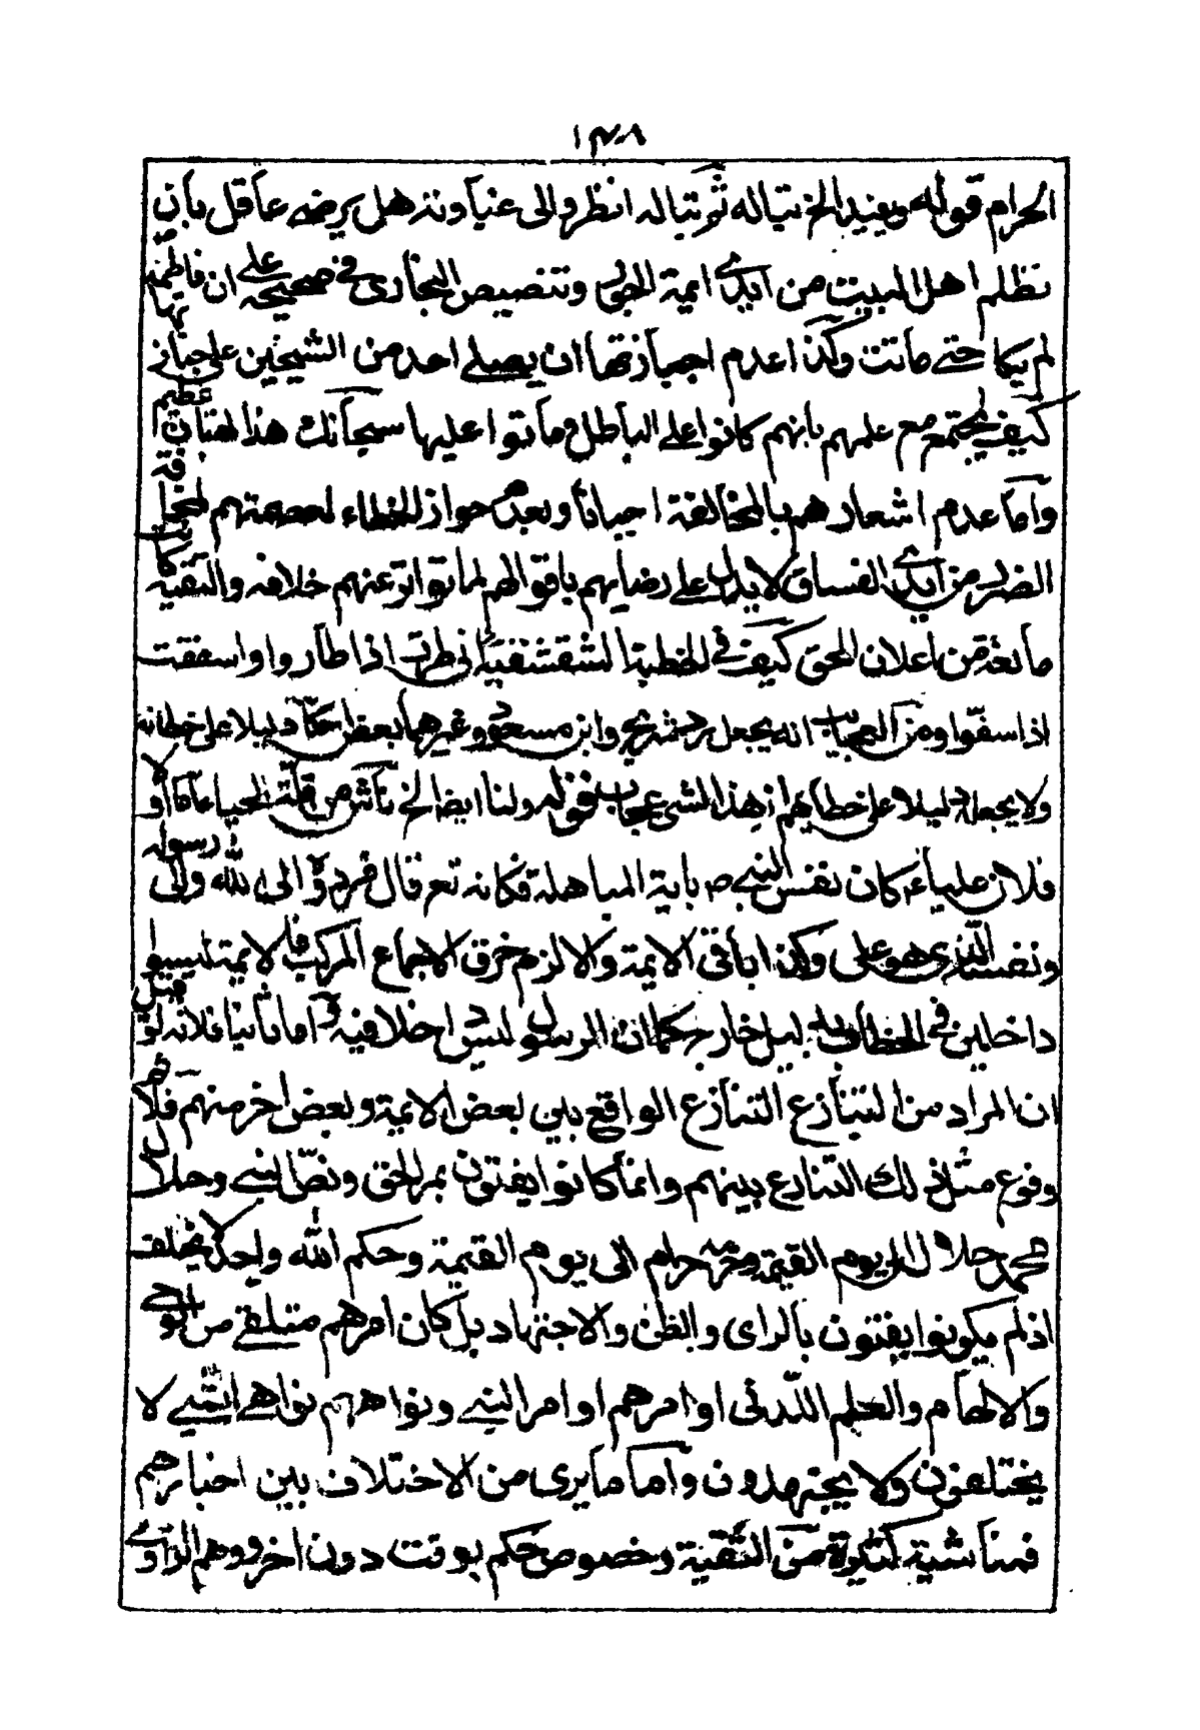 ١٣٨
الحرام قوله ويفيد الخ نتباله ثم تباله انظروا الى غباوته هل يرضى عاقل بان
تظلم اهل البيت من ايدى ائمة الجور وتنصيص البخارى فى صحيحه على ان فاطمة
لم تكلمهما حتى ماتت وكذا عدم اجازتها ان يصلى احد من الشيخين على جنازتها
كيف يجتمع مع علمهم بانهم كانوا على الباطل وماتوا عليها سبحانك هذا بهتان عظيم
واما عدم اشعارهم بالمخالفة احيانا وبعد جواز الخطاء لعصمتهم لمخافة
الضرر من ايدى الفساق لا يدل على رضايهم باقوالهم لما تواتر عنهم خلافه والتقية كانت
مانعة من اعلان الحق كيف فى الخطبة الشقشقية انى طرت اذا طاروا واسففت
اذا سفوا ومن العجايب انه يجعل رد شريح وابن مسعود وغيرهما بعض احكام دليلا على خطائه
ولا يجعله دليلا على خطايهم ان هذا لشئ عجاب قوله ولنا ايضا الخ ناش من قلة الحياء اما اولا
فلان عليا ع كان نفس النبى ص باية المباهلة فكانه تع قال فردوه الى الله والى رسوله
ونفسه الذى هو على وكذا باقى الائمة والا لزم خرق الاجماع المركب فالائمة ليسوا
داخلين فى الخطاب بدليل خارج كما ان الرسول ليس داخلا فيه واما ثانيا فلانه لو قيل
ان المراد من التنازع التنازع الواقع بين بعض الائمة وبعض اخر منهم فلا نم
وقوع مثل ذلك التنازع بينهم وانما كانوا يفتون بمر الحق ونص النبى وحلال
محمد حلال الى يوم القيمة وحرامه حرام الى يوم القيمة وحكم الله واحد لا يختلف
اذ لم يكونوا يفتون بالراى والظن والاجتهاد بل كان امرهم متلقى من الوحى
والالهام والعلم اللدنى اوامرهم اوامر النبى ونواهيهم نواهى النبى لا
يختلفون ولا يجتهدون واما ما يرى من الاختلاف بين اخبارهم
فمناشيه كثيرة من التقية وخصوص حكم بوقت دون اخر ووهم الراوى